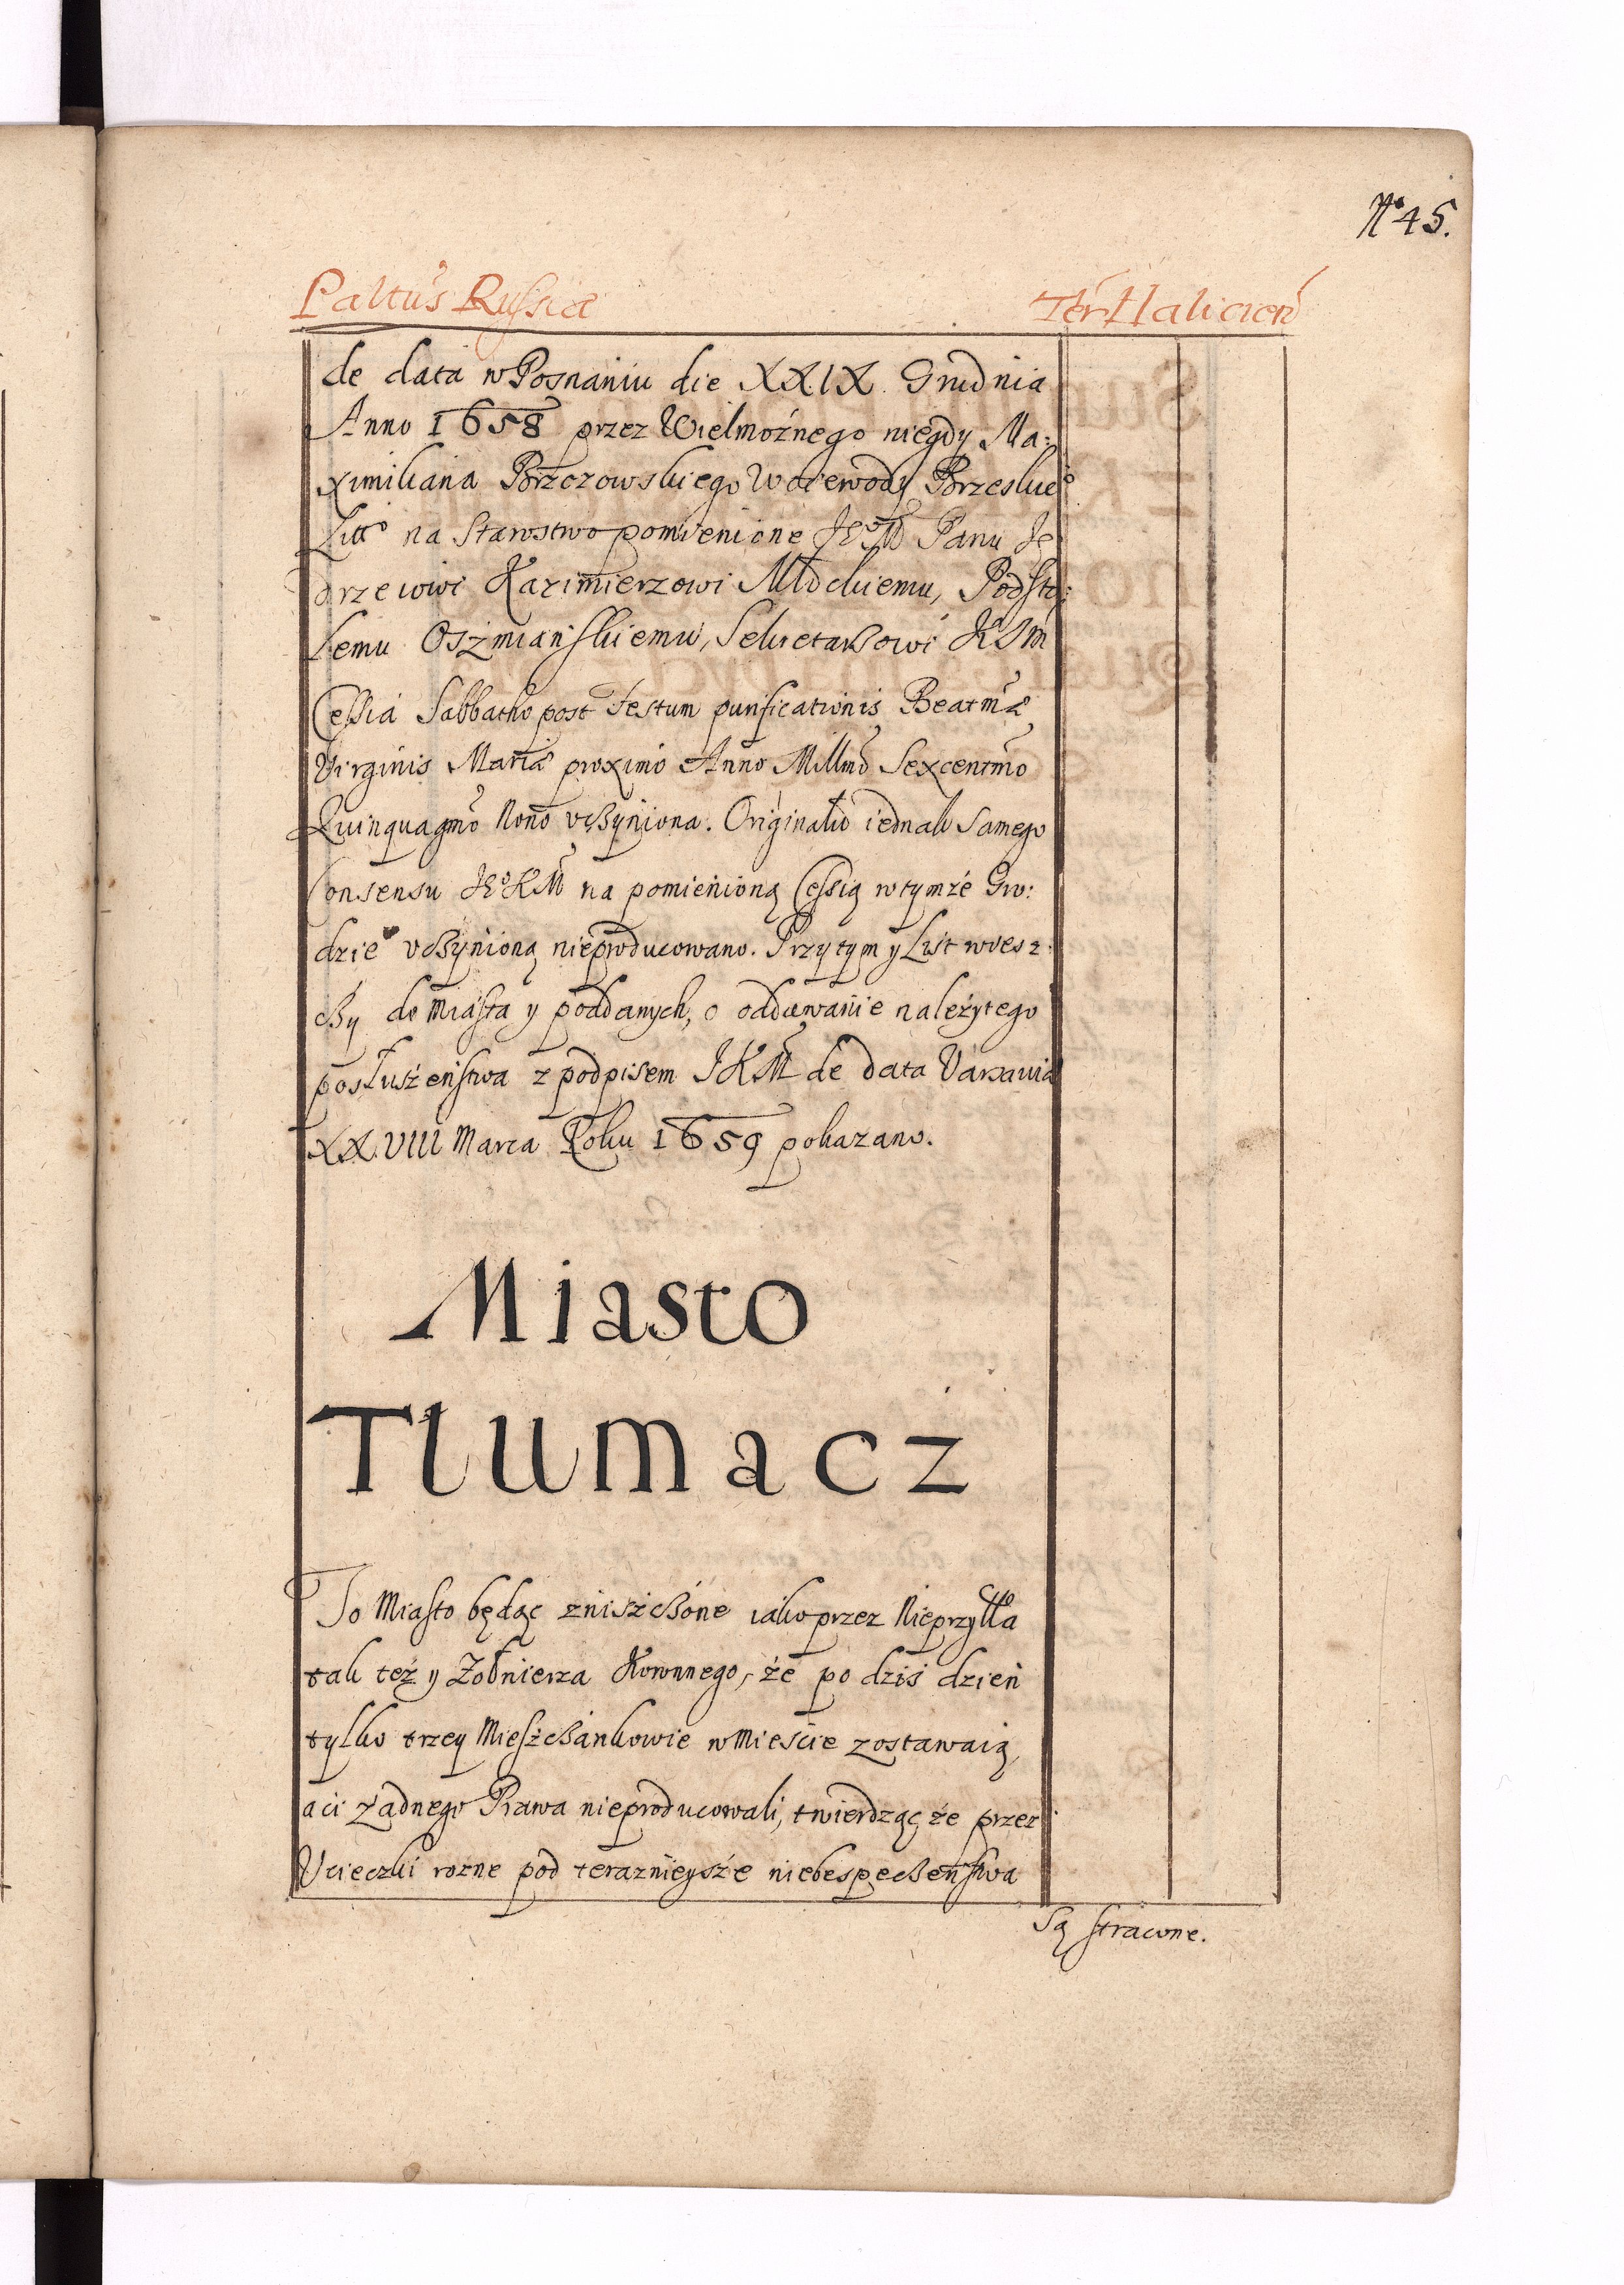 No 45.
Paltus Russiæ Ter Halicien
de data w Posnaniu die XXIX Grudnia
Anno 1658 przez Wielmożnego niegdy Ma:
ximiliana Brzozowskiego Woiewody Brzeskie°
Litt° na Starostwo pomienione JE°M Panu Je
drzeiowi Kazimierzowi Młockiemu, Podsto:
lemu Oszmianskiemu, Sekretarzowi JKM
Cessia Sabbatho post Festum purificationis Beatmæ
Virginis Mariæ proximo Anno Millmo Sexcentmo
Quinquagmo Nono vczyniona. Originału iednak samego
Consensu JE°KM na pomienioną Cessią w tymże Gro:
dzie vczynioną nieproducowano. Przy tym y List wiesz:
czy do Miasta y poddanych, o oddawanie należytego
posłuszenstwa z podpisem JKM de data Varsaviæ
XXVIII Marca Roku 1659 pokazano.
Miasto
Tlumacż
To Miasto będąc zniszczone iako przez Nieprzylla
tak też y Zołnierza Koronnego, że po dzis dzień
tylko trzey Mieszczankowie w Miescie zostawaią,
a ci żadnego Prawa nieproducowali, twierdząc że przez
Vcieczki rozne pod teraznieysze niebespeczenstwa
są stracone.